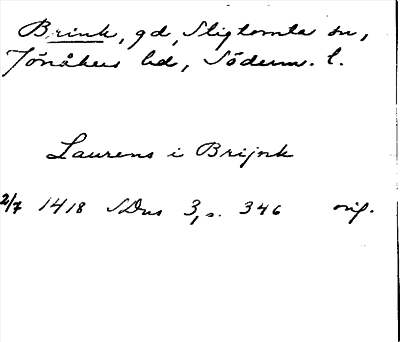 Brink, gd, Stigtomta sn,
Jönåkers hd, Söderm. l.
Laurens i Brijnk
2/7 1418 SDns 3, s. 346 orig.